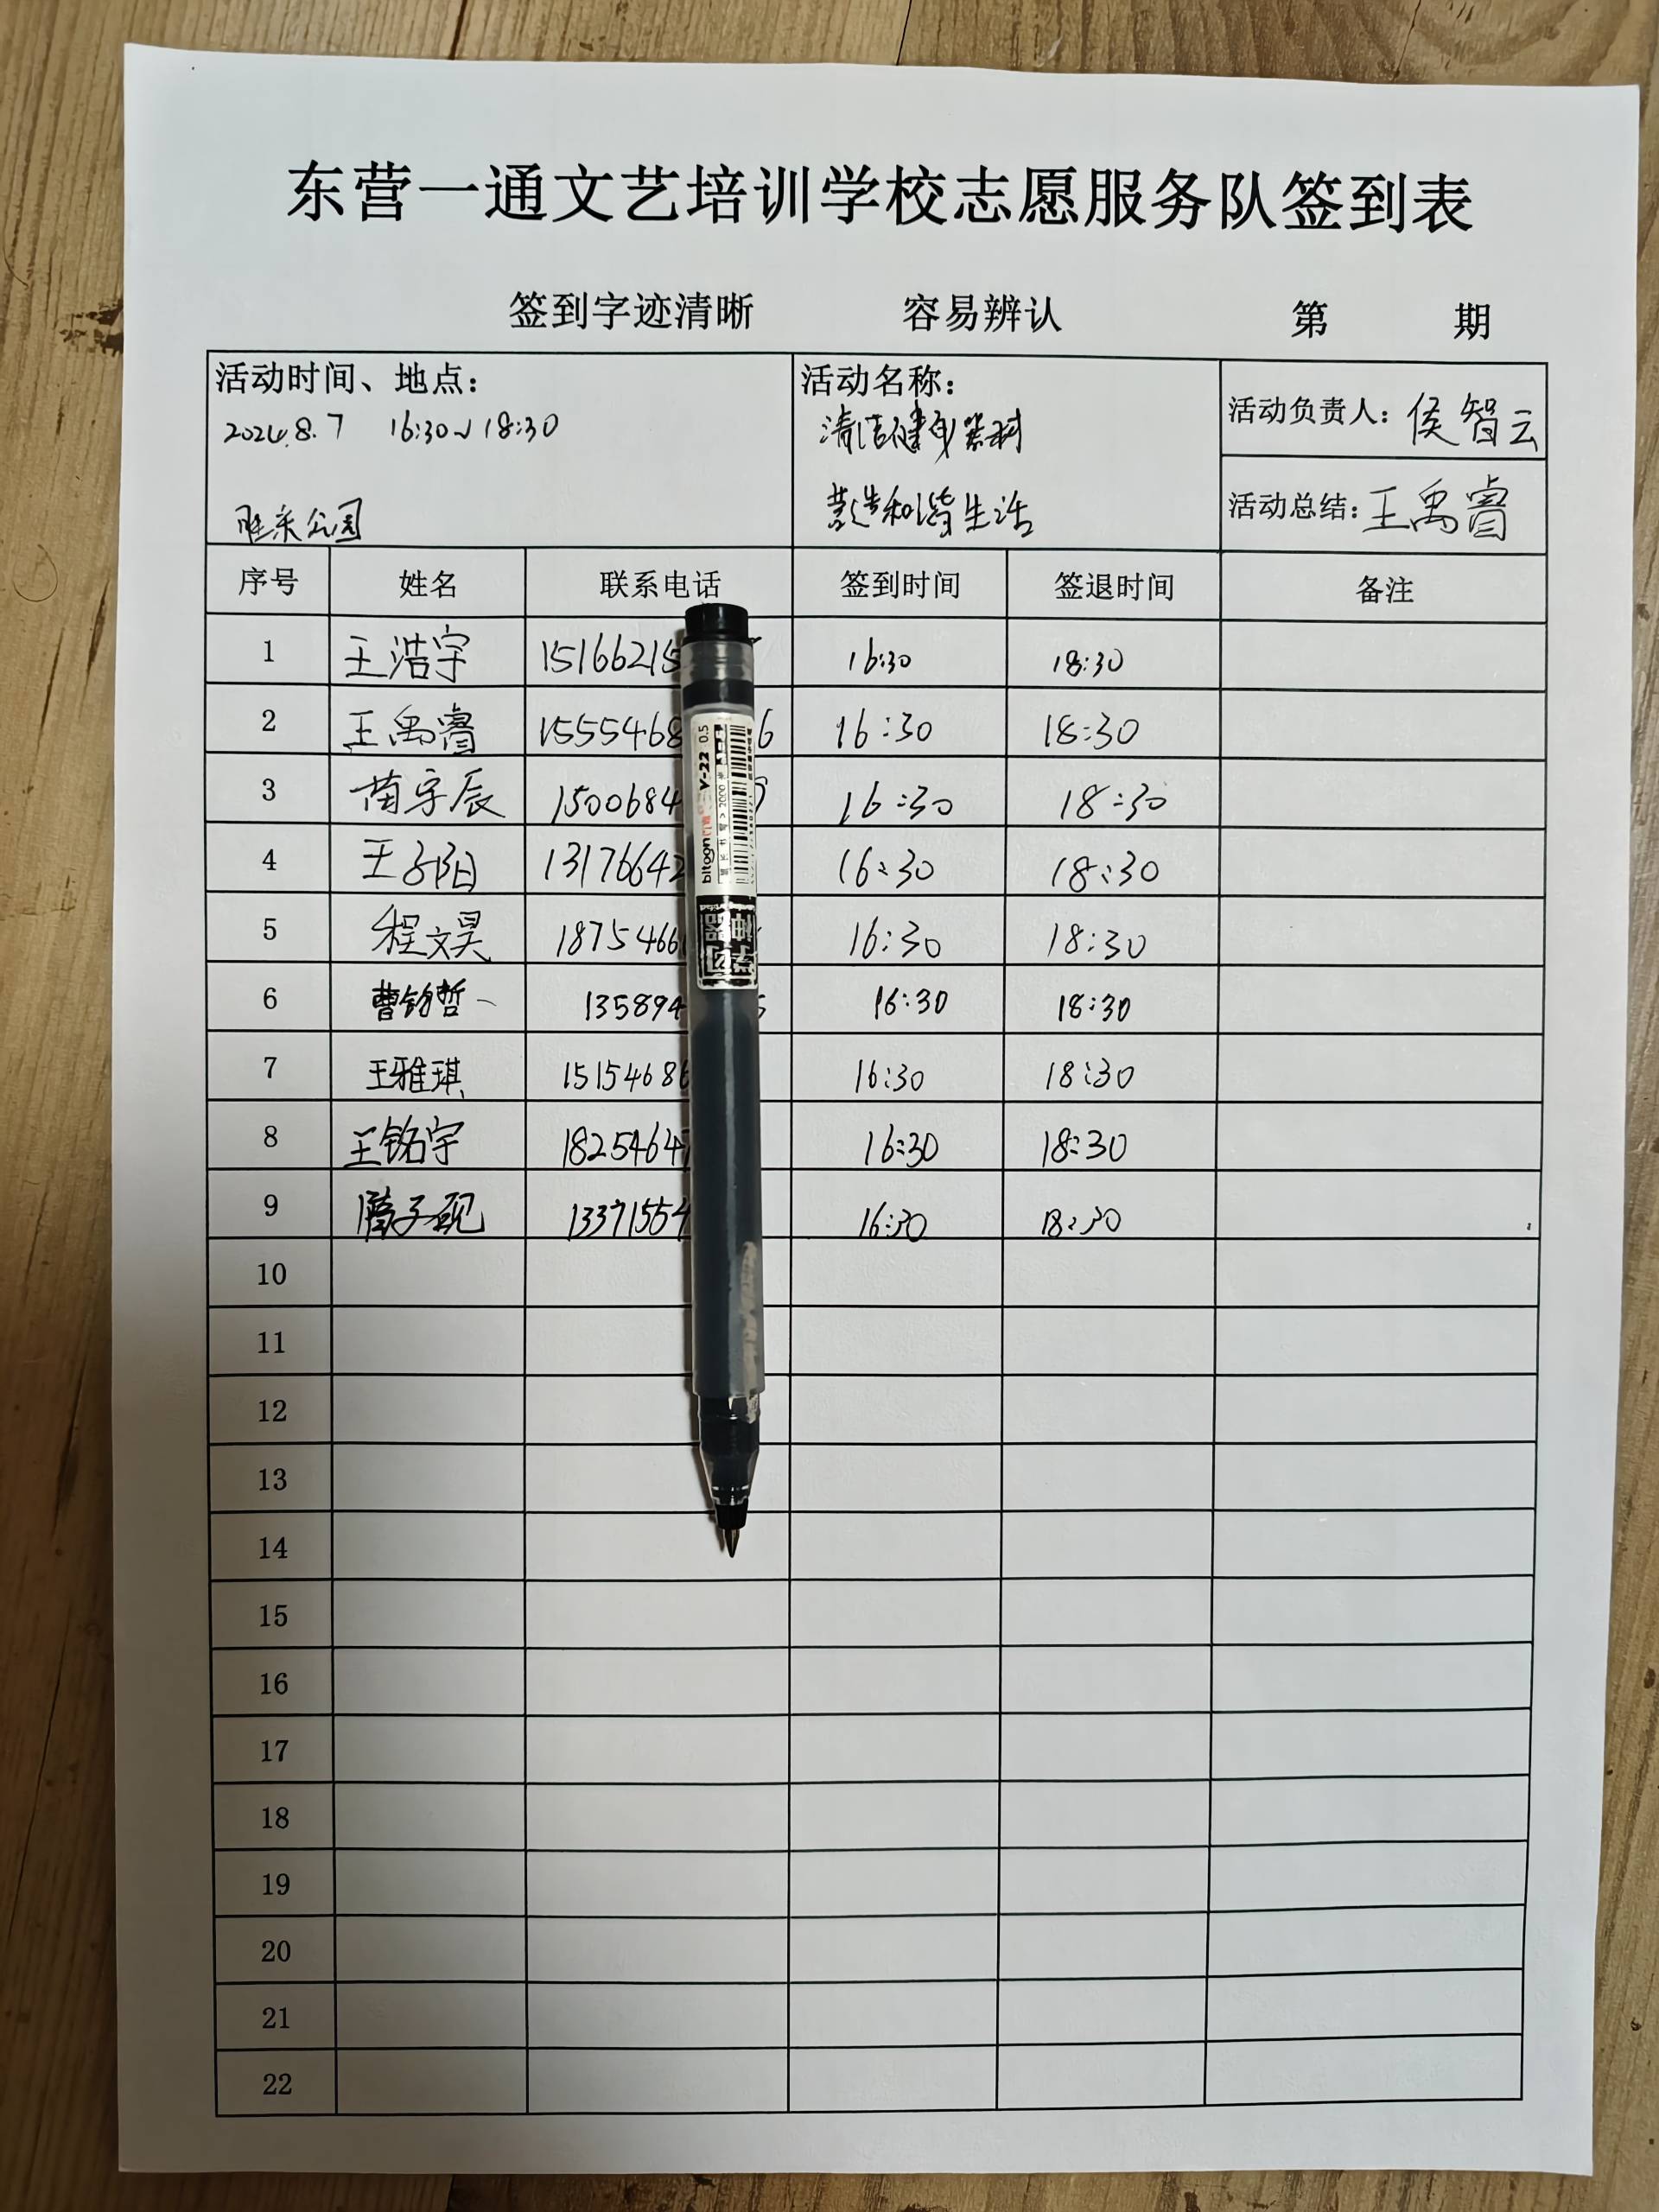 东营一通文艺培训学校志愿服务队签到表
签到字迹清晰 容易辨认 第 期
活动时间、地点： 活动名称： 活动负责人：侯智云
2024.8.7 16:30~18:30 清洁健身器材
公园 和谐生活 活动总结：王禹睿
序号 姓名 联系电话 签到时间 签退时间 备注
1 王浩宇 15166215 16:30 18:30
2 王禹睿 15554468 6 16:30 18:30
3 苗宇辰 1500684 16:30 18:30
4 王子阳 13176642 16:30 18:30
5 程文昊 18754466 16:30 18:30
6 曹铭哲 135894 16:30 18:30
7 王雅琪 15154686 16:30 18:30
8 王铭宇 18254647 16:30 18:30
9 子砚 13371554 16:30 18:30
10
11
12
13
14
15
16
17
18
19
20
21
22
bitoon V-22 0.5